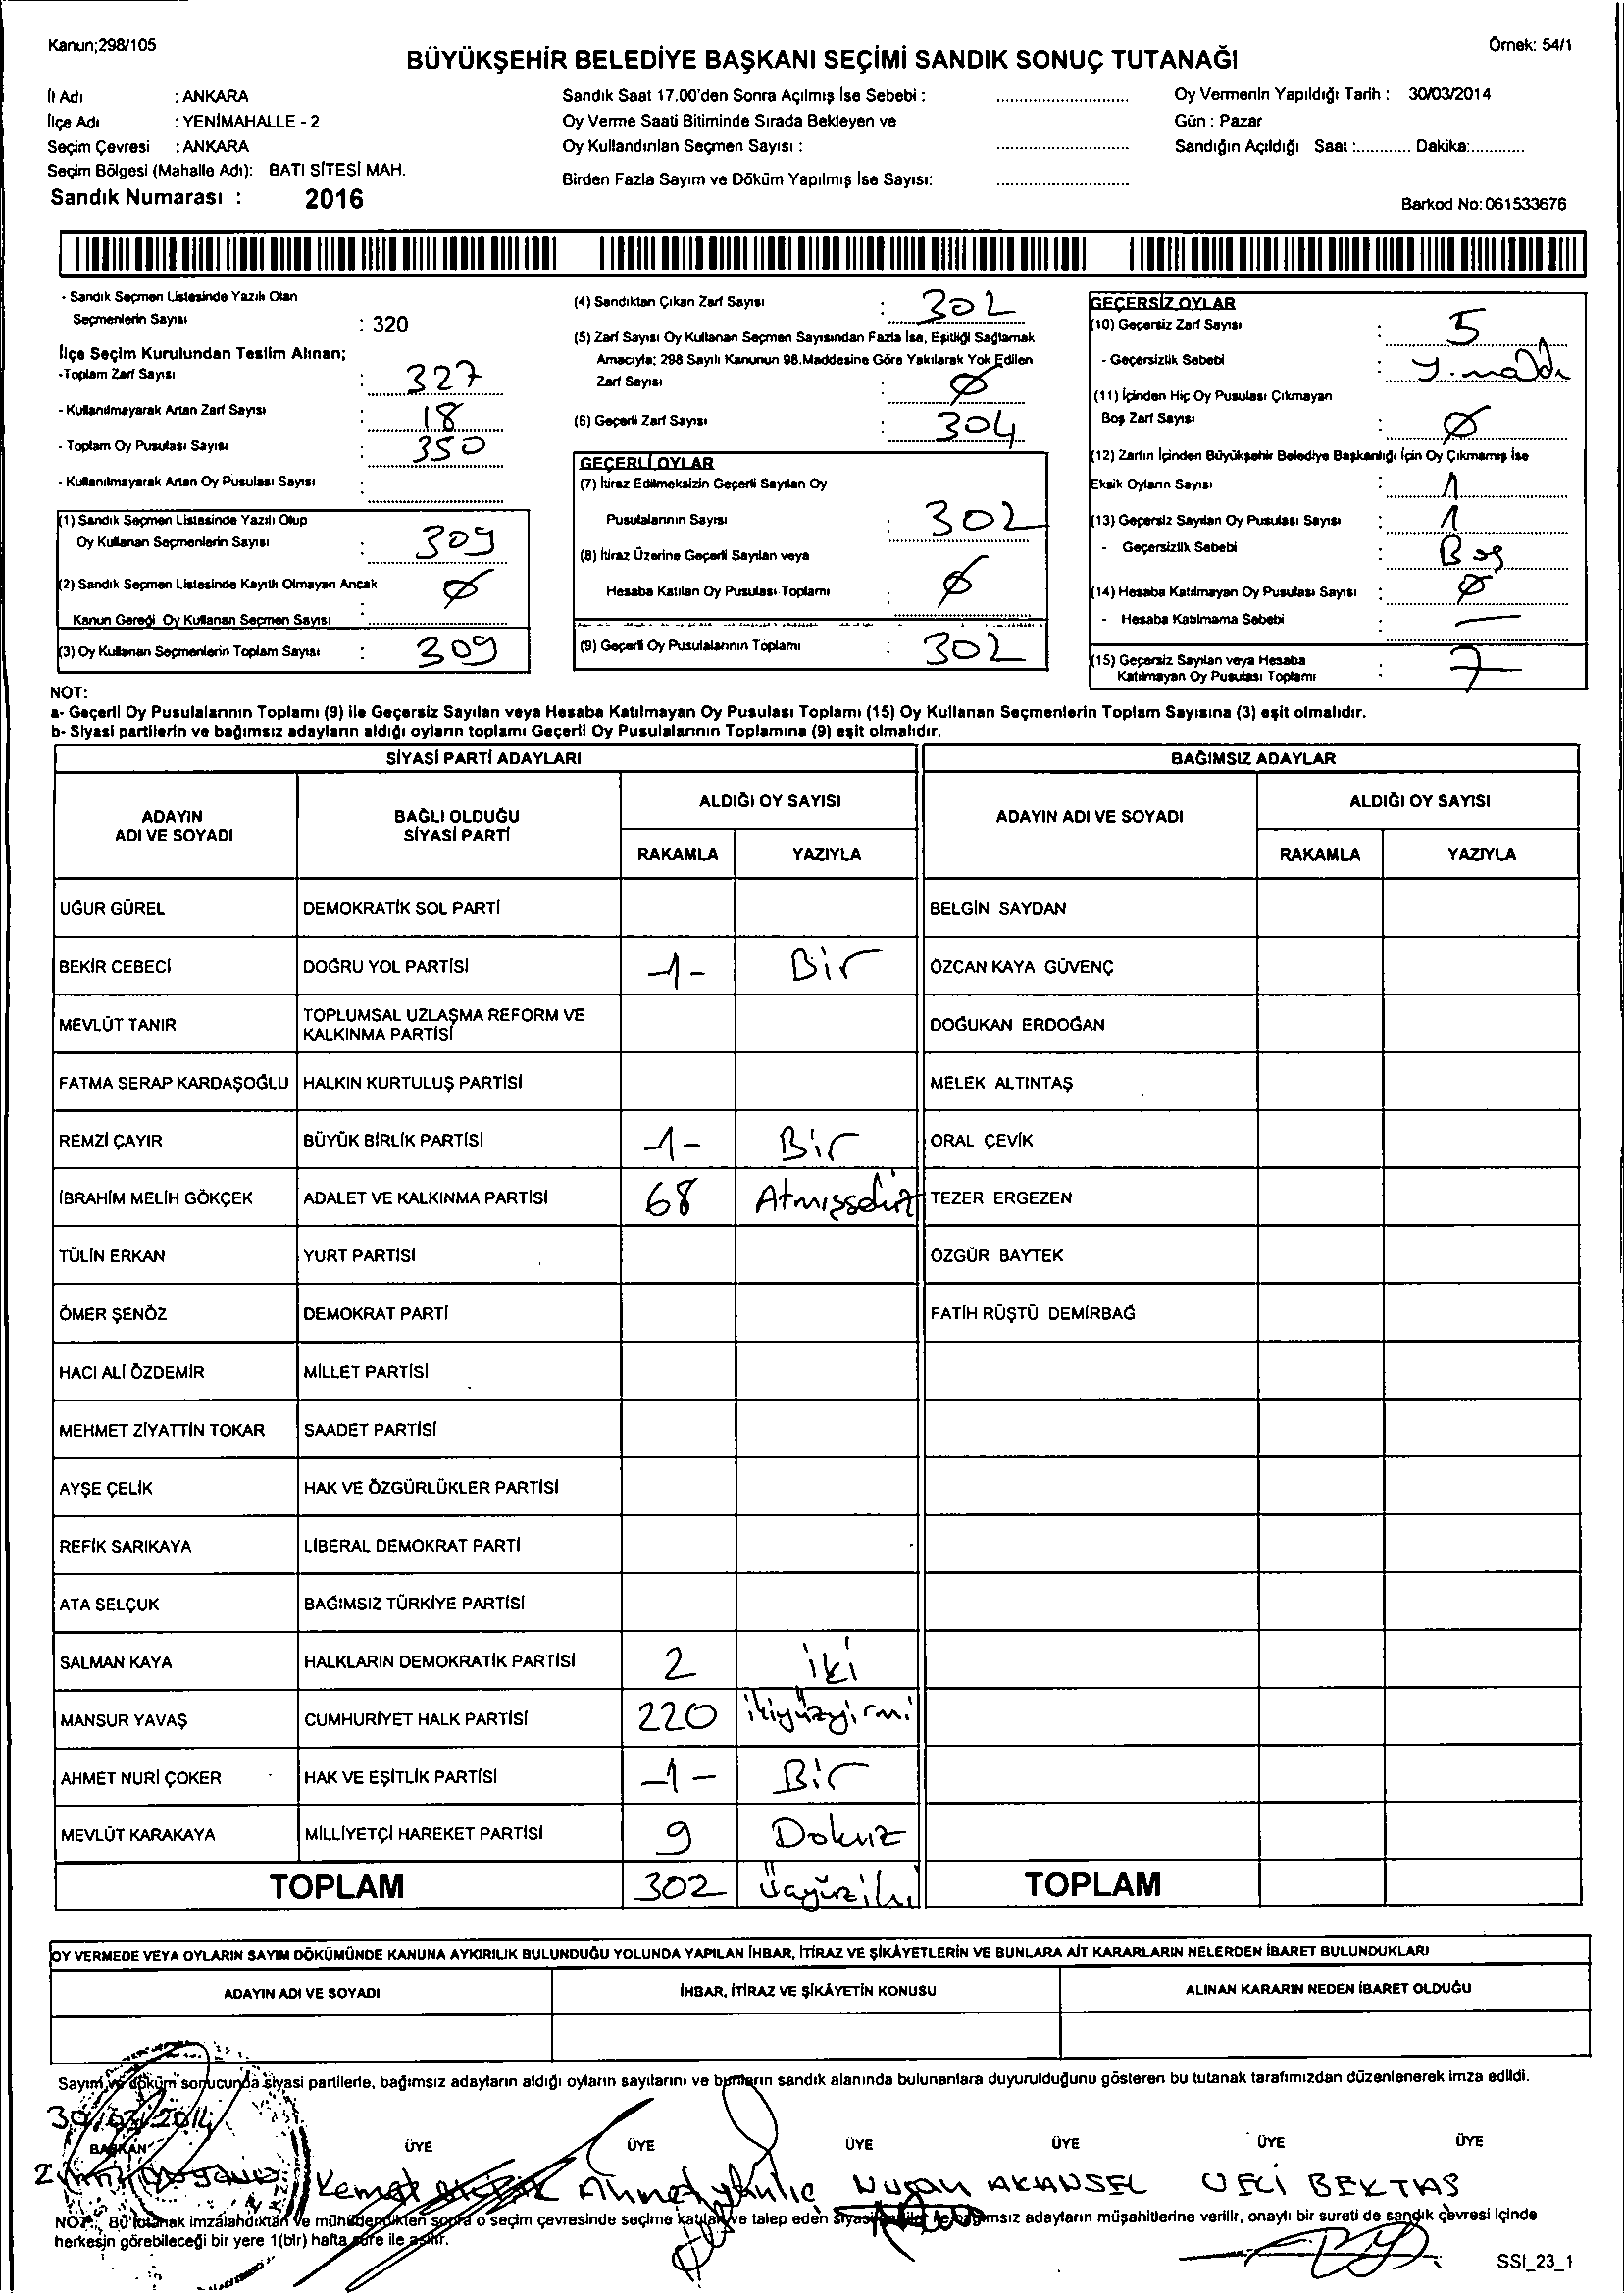 Kanun;298/105
Örnek: 54/1
BÜYÜKŞEHİR BELEDİYE BAŞKANI SEÇİMİ SANDIK SONUÇ TUTANAĞI
İl Adı : ANKARA
İlçe Adı : YENİMAHALLE - 2
Seçim Çevresi : ANKARA
Seçim Bölgesi (Mahalle Adı): BATI SİTESİ MAH.
Sandık Numarası : 2016
Sandık Saat 17.00'den Sonra Açılmış İse Sebebi :
Oy Verme Saati Bitiminde Sırada Bekleyen ve
Oy Kullandırılan Seçmen Sayısı :
Birden Fazla Sayım ve Döküm Yapılmış İse Sayısı:
Oy Vermenin Yapıldığı Tarih : 30/03/2014
Gün : Pazar
Sandığın Açıldığı Saat :............ Dakika:............
Barkod No: 061533676
- Sandık Seçmen Listesinde Yazılı Olan
Seçmenlerin Sayısı : 320
İlçe Seçim Kurulundan Teslim Alınan;
-Toplam Zarf Sayısı : 327
- Kullanılmayarak Artan Zarf Sayısı : 18
- Toplam Oy Pusulası Sayısı : 350
- Kullanılmayarak Artan Oy Pusulası Sayısı :
(1) Sandık Seçmen Listesinde Yazılı Olup
Oy Kullanan Seçmenlerin Sayısı : 309
(2) Sandık Seçmen Listesinde Kayıtlı Olmayan Ancak
Kanun Gereği Oy Kullanan Seçmen Sayısı : Ø
(3) Oy Kullanan Seçmenlerin Toplam Sayısı : 309
(4) Sandıktan Çıkan Zarf Sayısı : 302
(5) Zarf Sayısı Oy Kullanan Seçmen Sayısından Fazla İse, Eşitliği Sağlamak
Amacıyla; 298 Sayılı Kanunun 98.Maddesine Göre Yakılarak Yok Edilen
Zarf Sayısı : Ø
(6) Geçerli Zarf Sayısı : 304
GEÇERLİ OYLAR
(7) İtiraz Edilmeksizin Geçerli Sayılan Oy
Pusulalarının Sayısı : 302
(8) İtiraz Üzerine Geçerli Sayılan veya
Hesaba Katılan Oy Pusulası Toplamı : Ø
(9) Geçerli Oy Pusulalarının Toplamı : 302
GEÇERSİZ OYLAR
(10) Geçersiz Zarf Sayısı : 5
- Geçersizlik Sebebi :
(11) İçinden Hiç Oy Pusulası Çıkmayan
Boş Zarf Sayısı : Ø
(12) Zarfın İçinden Büyükşehir Belediye Başkanlığı İçin Oy Çıkmamış İse
Eksik Oyların Sayısı : 1
(13) Geçersiz Sayılan Oy Pusulası Sayısı : 1
- Geçersizlik Sebebi : Boş
(14) Hesaba Katılmayan Oy Pusulası Sayısı : Ø
- Hesaba Katılmama Sebebi : —
(15) Geçersiz Sayılan veya Hesaba
Katılmayan Oy Pusulası Toplamı : 7
NOT:
a- Geçerli Oy Pusulalarının Toplamı (9) ile Geçersiz Sayılan veya Hesaba Katılmayan Oy Pusulası Toplamı (15) Oy Kullanan Seçmenlerin Toplam Sayısına (3) eşit olmalıdır.
b- Siyasi partilerin ve bağımsız adayların aldığı oyların toplamı Geçerli Oy Pusulalarının Toplamına (9) eşit olmalıdır.
SİYASİ PARTİ ADAYLARI BAĞIMSIZ ADAYLAR
ADAYIN ADI VE SOYADI
BAĞLI OLDUĞU SİYASİ PARTİ
ALDIĞI OY SAYISI
RAKAMLA YAZIYLA
ADAYIN ADI VE SOYADI
ALDIĞI OY SAYISI
RAKAMLA YAZIYLA
UĞUR GÜREL DEMOKRATİK SOL PARTİ BELGİN SAYDAN
BEKİR CEBECİ DOĞRU YOL PARTİSİ -1- Bir ÖZCAN KAYA GÜVENÇ
MEVLÜT TANIR TOPLUMSAL UZLAŞMA REFORM VE KALKINMA PARTİSİ DOĞUKAN ERDOĞAN
FATMA SERAP KARDAŞOĞLU HALKIN KURTULUŞ PARTİSİ MELEK ALTINTAŞ
REMZİ ÇAYIR BÜYÜK BİRLİK PARTİSİ -1- Bir ORAL ÇEVİK
İBRAHİM MELİH GÖKÇEK ADALET VE KALKINMA PARTİSİ 68 Atmışsekiz TEZER ERGEZEN
TÜLİN ERKAN YURT PARTİSİ ÖZGÜR BAYTEK
ÖMER ŞENÖZ DEMOKRAT PARTİ FATİH RÜŞTÜ DEMİRBAĞ
HACI ALİ ÖZDEMİR MİLLET PARTİSİ
MEHMET ZİYATTİN TOKAR SAADET PARTİSİ
AYŞE ÇELİK HAK VE ÖZGÜRLÜKLER PARTİSİ
REFİK SARIKAYA LİBERAL DEMOKRAT PARTİ
ATA SELÇUK BAĞIMSIZ TÜRKİYE PARTİSİ
SALMAN KAYA HALKLARIN DEMOKRATİK PARTİSİ 2 iki
MANSUR YAVAŞ CUMHURİYET HALK PARTİSİ 220 ikiyüzyirmi
AHMET NURİ ÇOKER HAK VE EŞİTLİK PARTİSİ -1- Bir
MEVLÜT KARAKAYA MİLLİYETÇİ HAREKET PARTİSİ 9 Dokuz
TOPLAM 302 Üçyüziki TOPLAM
OY VERMEDE VEYA OYLARIN SAYIM DÖKÜMÜNDE KANUNA AYKIRILIK BULUNDUĞU YOLUNDA YAPILAN İHBAR, İTİRAZ VE ŞİKÂYETLERİN VE BUNLARA AİT KARARLARIN NELERDEN İBARET BULUNDUKLARI
ADAYIN ADI VE SOYADI İHBAR, İTİRAZ VE ŞİKÂYETİN KONUSU ALINAN KARARIN NEDEN İBARET OLDUĞU
Sayım ve döküm sonucunda siyasi partilerle, bağımsız adayların aldığı oyların sayılarını ve bunların sandık alanında bulunanlara duyurulduğunu gösteren bu tutanak tarafımızdan düzenlenerek imza edildi.
30/03/2014
BAŞKAN ÜYE ÜYE ÜYE ÜYE ÜYE ÜYE
Kemal Ahmet NURAN AKANSEL VELİ BEKTAŞ
NOT: Bu tutanak imzalandıktan ve mühürlendikten sonra o seçim çevresinde seçime katılan ve talep eden siyasi partiler ile bağımsız adayların müşahitlerine verilir, onaylı bir sureti de sandık çevresi içinde
herkesin görebileceği bir yere 1(bir) hafta süre ile asılır.
SSI_23_1